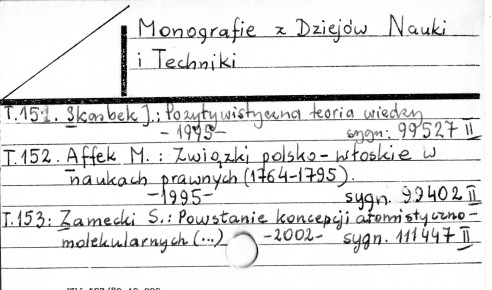 Monografie z Dziejów Nauki
i Techniki
T.151. Skarbek J.: Pozytywistyczna teoria wiedzy
- 1995 - sygn. 99527 II
T.152. Affek M. : Związki polsko-włoskie w
naukach prawnych (1764-1795).
-1995- sygn. 99402 II
T.153: Zamecki S.: Powstanie koncepcji atomistyczno-
molekularnych (...) -2002- sygn. 111447 II